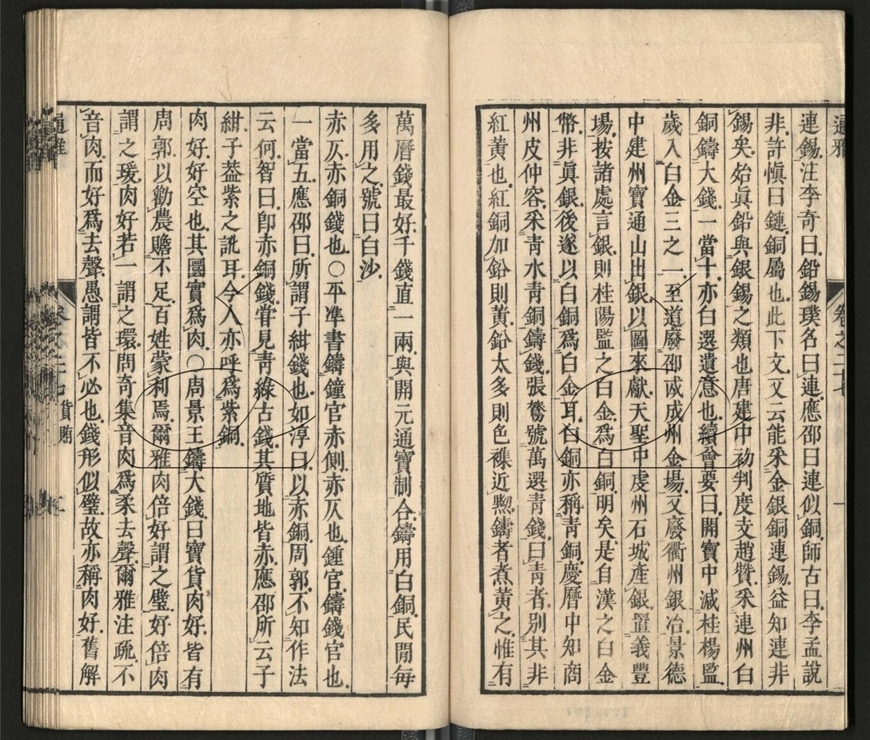 通雅
卷之二十七
連錫注李奇曰鉛錫璞名曰連應邵曰連似銅師古曰李孟說
非許慎曰鏈銅屬也此下文又云能采金銀銅連錫益知連非
錫矣始眞鉛與銀錫之類也唐建中初判度支趙贊采連州白
銅鑄大錢一當十亦白選遺意也續會要曰開寶中減桂楊監
歲入白金三之一至道廢邵咸成州金場又廢衢州銀冶景德
中建州寶通山出銀以圖來獻天聖中虔州石城產銀置義豐
場按諸處言銀則桂陽監之白金爲白銅明矣是自漢之白金
幣非眞銀後遂以白銅爲白金耳白銅亦稱青銅慶曆中知商
州皮仲容采靑水青銅鑄錢張鷟號萬選靑錢曰青者別其非
紅黃也紅銅加鉛則黃鉛太多則色襍近黦鑄者煮黃之惟有
萬曆錢最好千錢直一兩與開元通寶制合鑄用白銅民閒每
多用之號曰白沙
赤仄亦銅錢也○平準書鑄鐘官赤側亦仄也鍾官鑄錢官也
一當五應邵曰所謂子紺錢也如淳曰以赤銅周郭不知作法
云何智曰卽赤銅錢嘗見靑綠古錢其質地皆赤應邵所云子
紺子葢紫之訛耳今人亦呼爲紫銅
肉好好空也其圜實爲肉○周景王鑄大錢曰寶貨肉好皆有
周郭以勸農贍不足百姓蒙利焉爾雅肉倍好謂之璧好倍肉
謂之瑗肉好若一謂之環問奇集音肉爲柔去聲爾雅注疏不
音肉而好爲去聲愚謂皆不必也錢形似璧故亦稱肉好舊解
通雅
貨賄